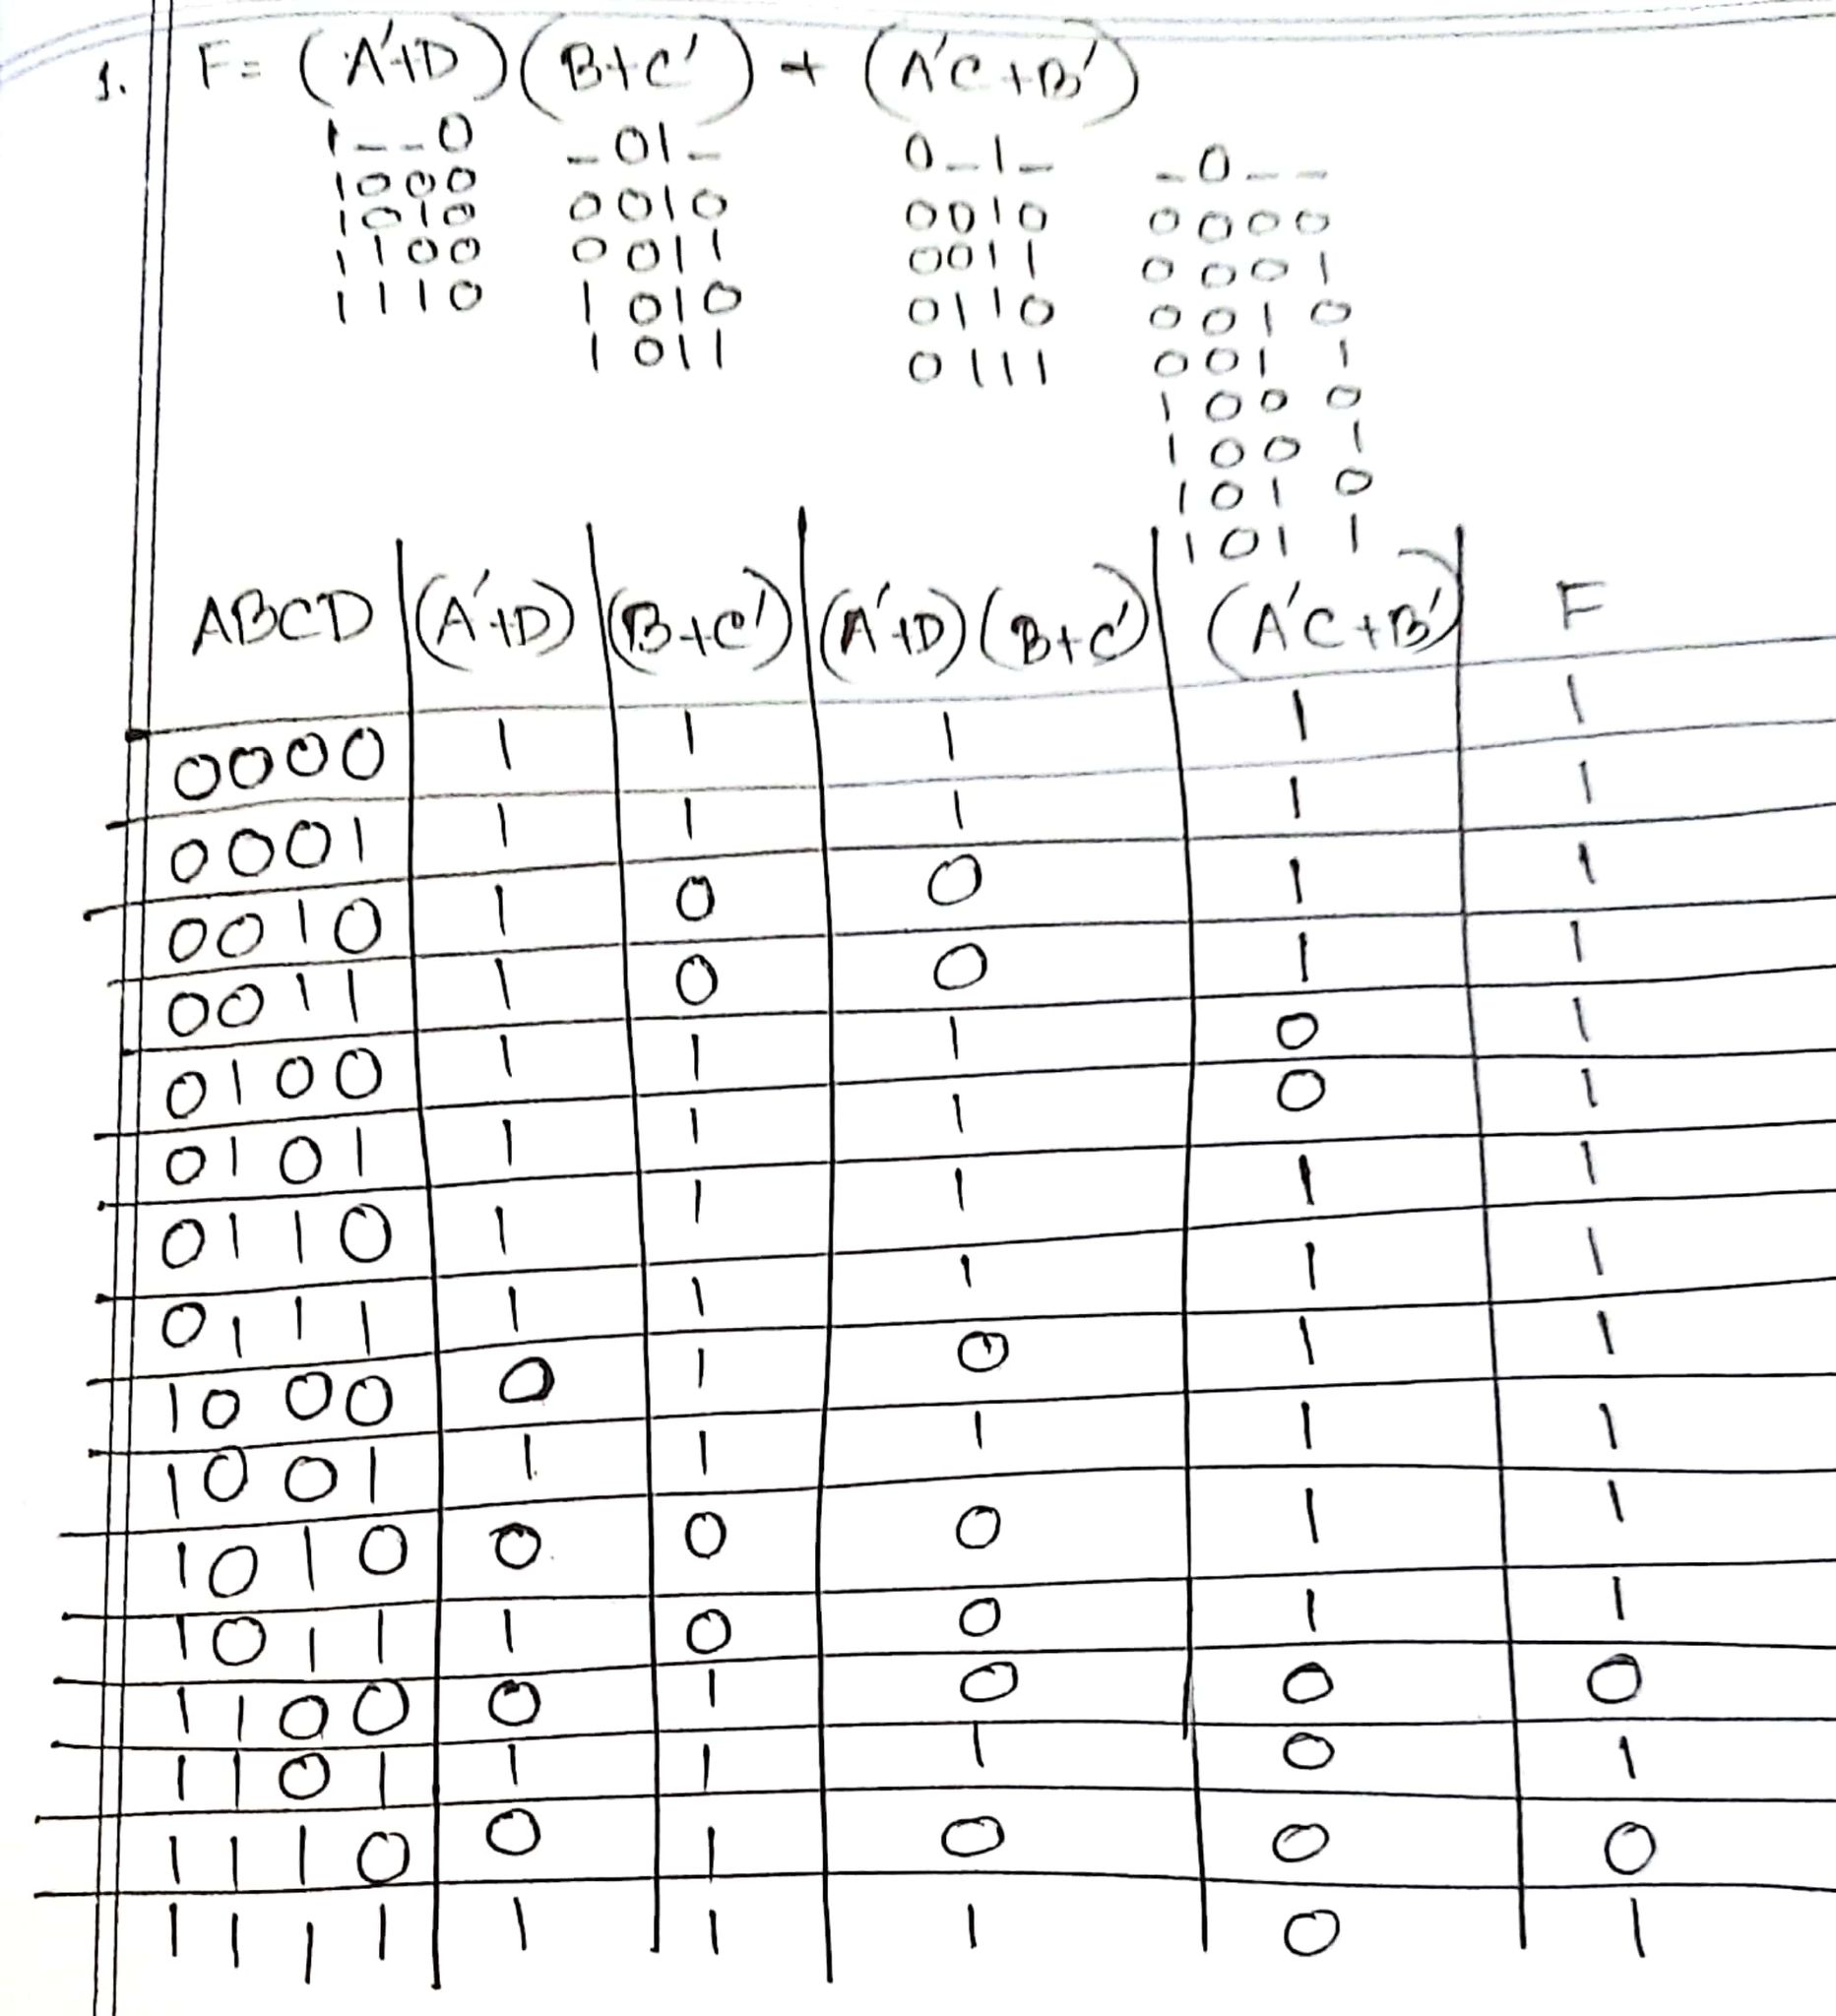 1. F = (A'+D)(B+C') + (A'C+B')
1--0 -01- 0-1- -0--
1000 0010 0010 0000
1010 0011 0011 0001
1100 1010 0110 0010
1110 1011 0111 0011
1000
1001
1010
1011
ABCD (A'+D) (B+C') (A'+D)(B+C') (A'C+B') F
0000 1 1 1 1 1
0001 1 1 1 1 1
0010 1 0 0 1 1
0011 1 0 0 1 1
0100 1 1 1 0 1
0101 1 1 1 0 1
0110 1 1 1 1 1
0111 1 1 1 1 1
1000 0 1 0 1 1
1001 1 1 1 1 1
1010 0 0 0 1 1
1011 1 0 0 1 1
1100 0 1 0 0 0
1101 1 1 1 0 1
1110 0 1 0 0 0
1111 1 1 1 0 1